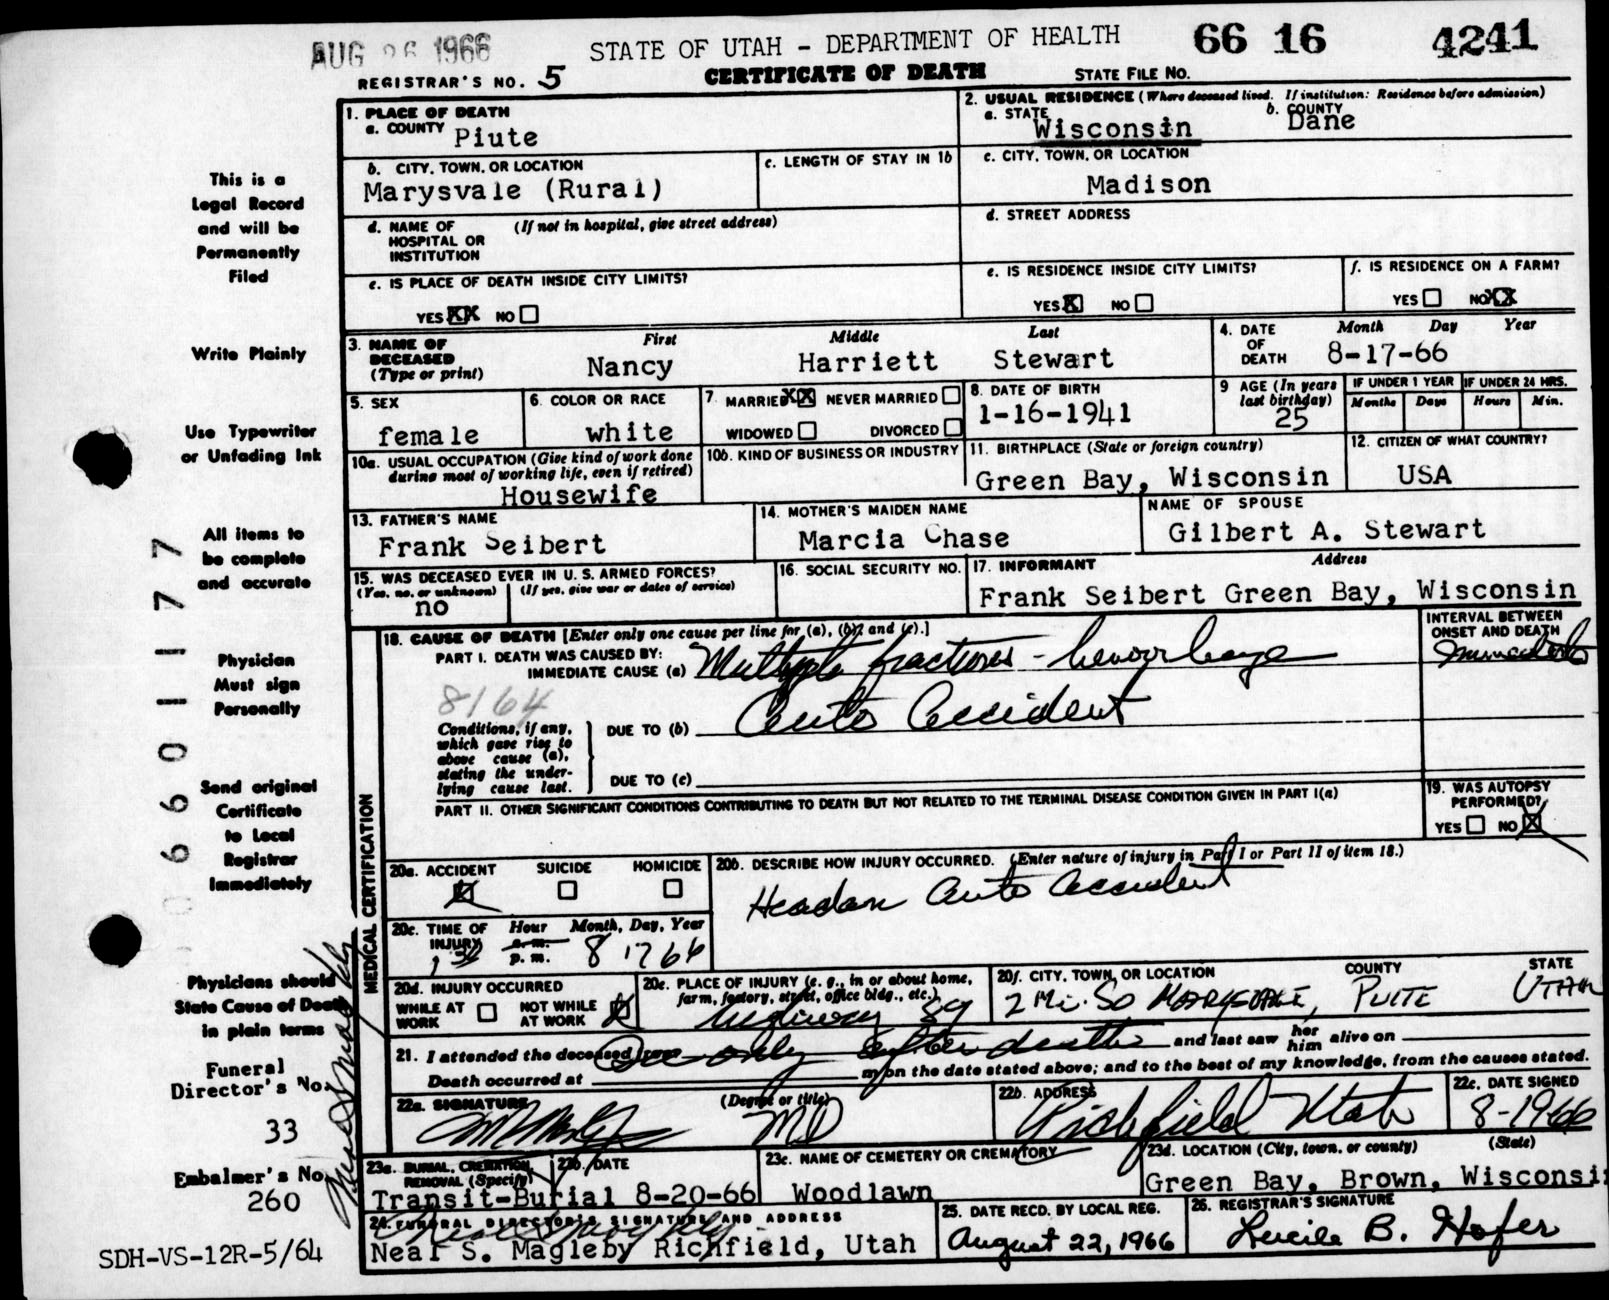 AUG 26 1966
STATE OF UTAH - DEPARTMENT OF HEALTH
66 16 4241
REGISTRAR'S NO. 5
CERTIFICATE OF DEATH
STATE FILE NO.
This is a
Legal Record
and will be
Permanently
Filed
Write Plainly
Use Typewriter
or Unfading Ink
All items to
be complete
and accurate
Physician
Must sign
Personally
Send original
Certificate
to Local
Registrar
Immediately
Physicians should
State Cause of Death
in plain terms
Funeral
Director's No.
33
Embalmer's No.
260
SDH-VS-12R-5/64
0 6 6 0 1 1 7 7
1. PLACE OF DEATH
a. COUNTY Piute
2. USUAL RESIDENCE (Where deceased lived. If institution: Residence before admission)
a. STATE Wisconsin
b. COUNTY Dane
b. CITY, TOWN, OR LOCATION
Marysvale (Rural)
c. LENGTH OF STAY IN 1b
c. CITY, TOWN, OR LOCATION
Madison
d. NAME OF HOSPITAL OR INSTITUTION (If not in hospital, give street address)
d. STREET ADDRESS
e. IS PLACE OF DEATH INSIDE CITY LIMITS?
YES XX NO
e. IS RESIDENCE INSIDE CITY LIMITS?
YES X NO
f. IS RESIDENCE ON A FARM?
YES NO XX
3. NAME OF DECEASED (Type or print)
First Middle Last
Nancy Harriett Stewart
4. DATE OF DEATH Month Day Year
8-17-66
5. SEX
female
6. COLOR OR RACE
white
7. MARRIED XX NEVER MARRIED
WIDOWED DIVORCED
8. DATE OF BIRTH
1-16-1941
9 AGE (In years last birthday)
25
IF UNDER 1 YEAR
Months Days
IF UNDER 24 HRS.
Hours Min.
10a. USUAL OCCUPATION (Give kind of work done during most of working life, even if retired)
Housewife
10b. KIND OF BUSINESS OR INDUSTRY
11. BIRTHPLACE (State or foreign country)
Green Bay, Wisconsin
12. CITIZEN OF WHAT COUNTRY?
USA
13. FATHER'S NAME
Frank Seibert
14. MOTHER'S MAIDEN NAME
Marcia Chase
NAME OF SPOUSE
Gilbert A. Stewart
15. WAS DECEASED EVER IN U. S. ARMED FORCES?
(Yes, no, or unknown) (If yes, give war or dates of service)
no
16. SOCIAL SECURITY NO.
17. INFORMANT Address
Frank Seibert Green Bay, Wisconsin
MEDICAL CERTIFICATION
18. CAUSE OF DEATH [Enter only one cause per line for (a), (b), and (c).]
PART I. DEATH WAS CAUSED BY:
IMMEDIATE CAUSE (a) Multiple fractions - hemorrhage
INTERVAL BETWEEN ONSET AND DEATH
Immediate
8164
Conditions, if any, which gave rise to above cause (a), stating the underlying cause last.
DUE TO (b) Auto Accident
DUE TO (c)
PART II. OTHER SIGNIFICANT CONDITIONS CONTRIBUTING TO DEATH BUT NOT RELATED TO THE TERMINAL DISEASE CONDITION GIVEN IN PART I(a)
19. WAS AUTOPSY PERFORMED?
YES NO X
20a. ACCIDENT SUICIDE HOMICIDE
X
20b. DESCRIBE HOW INJURY OCCURRED. (Enter nature of injury in Part I or Part II of item 18.)
Headon Auto Accident
20c. TIME OF INJURY Hour Month, Day, Year
1 30 a.m. p.m. 8 17 66
20d. INJURY OCCURRED
WHILE AT WORK NOT WHILE AT WORK X
20e. PLACE OF INJURY (e. g., in or about home, farm, factory, street, office bldg., etc.)
highway 89
20f. CITY, TOWN, OR LOCATION COUNTY STATE
2 Mi. So MARYSVALE, PIUTE UTAH
21. I attended the deceased from See only after death and last saw her him alive on
Death occurred at m on the date stated above; and to the best of my knowledge, from the causes stated.
22a. SIGNATURE (Degree or title)
MD
22b. ADDRESS
Richfield Utah
22c. DATE SIGNED
8-19-66
23a. BURIAL, CREMATION, REMOVAL (Specify)
Transit-Burial
23b. DATE
8-20-66
23c. NAME OF CEMETERY OR CREMATORY
Woodlawn
23d. LOCATION (City, town, or county) (State)
Green Bay, Brown, Wisconsin
24. FUNERAL DIRECTOR'S SIGNATURE AND ADDRESS
Neal S. Magleby Richfield, Utah
25. DATE RECD. BY LOCAL REG.
August 22, 1966
26. REGISTRAR'S SIGNATURE
Lucile B. Hofer